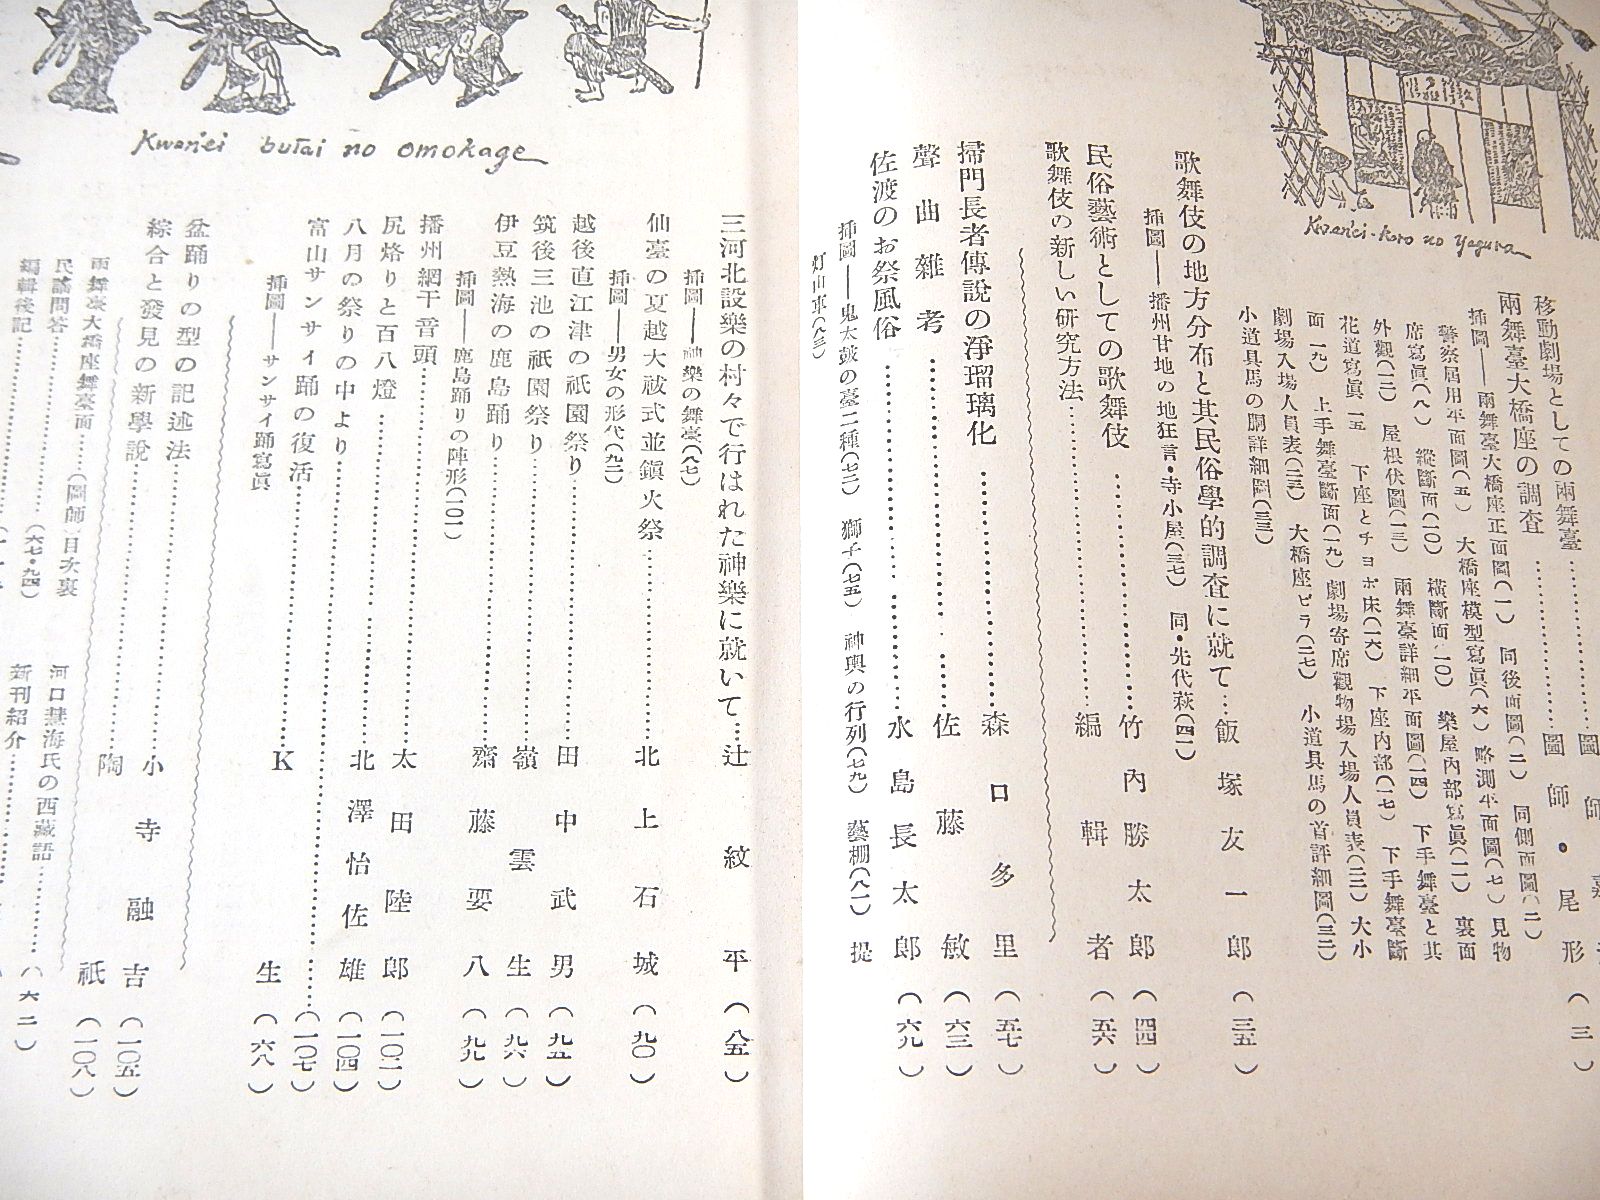 Kwan'ei-koro no yagura
移動劇場としての兩舞臺
兩舞臺大橋座の調査………圖師・尾形(三)
挿圖――兩舞臺大橋座正面圖(一) 同後面圖(二) 同側面圖(二)
大橋座模型寫眞(六) 略測平面圖(七) 見物
席寫眞(八) 縱斷面(一〇) 橫斷面(一〇) 樂屋內部寫眞(一一) 裏面
外觀(一二) 屋根伏圖(一三) 兩舞臺詳細平面圖(一四) 下手舞臺と其
花道寫眞一五 下座とチョボ床(一六) 下座內部(一七) 下手舞臺斷
面一九) 上手舞臺斷面(一九) 劇場寄席觀物場入場人員表(二三) 大小
劇場入場人員表(二三) 大橋座ビラ(二七) 小道具馬の首詳細圖(三二)
小道具馬の胴詳細圖(三三)
歌舞伎の地方分布と其民俗學的調査に就て…飯塚友一郎(三五)
挿圖――播州甘地の地狂言・寺小屋(三七) 同・先代萩(四一)
民俗藝術としての歌舞伎………竹內勝太郎(四四)
歌舞伎の新しい研究方法………編輯者(五六)
掃門長者傳說の淨瑠璃化………森口多里(五七)
聲曲雜考………佐藤敏(六三)
佐渡のお祭風俗………水島長太郎(六九)
挿圖――鬼太鼓の臺二種(七二) 獅子(七五) 神輿の行列(七九) 藝棚(八一) 提
灯山車(八三)
Kwan'ei butai no omokage
三河北設樂の村々で行はれた神樂に就いて…辻紋平(八五)
挿圖――神樂の舞臺(八七)
仙臺の夏越大祓式並鎭火祭………北上石城(九〇)
挿圖――男女の形代(九二)
越後直江津の祇園祭り………田中武男(九五)
筑後三池の祇園祭り………嶺雲生(九六)
伊豆熱海の鹿島踊り………齋藤要八(九九)
挿圖――鹿島踊りの陣形(一〇一)
播州網干音頭………太田陸郎(一〇二)
尻烙りと百八燈………北澤怡佐雄(一〇四)
八月の祭りの中より………(一〇七)
富山サンサイ踊の復活………K生(六八)
挿圖――サンサイ踊寫眞
盆踊りの型の記述法………小寺融吉(一〇五)
綜合と發見の新學說………陶祇(一〇八)
兩舞臺大橋座舞臺面……(圖師)目次裏
民謠問答………(六七・九四)
河口慧海氏の西藏語………(六二)
編輯後記………
新刊紹介………